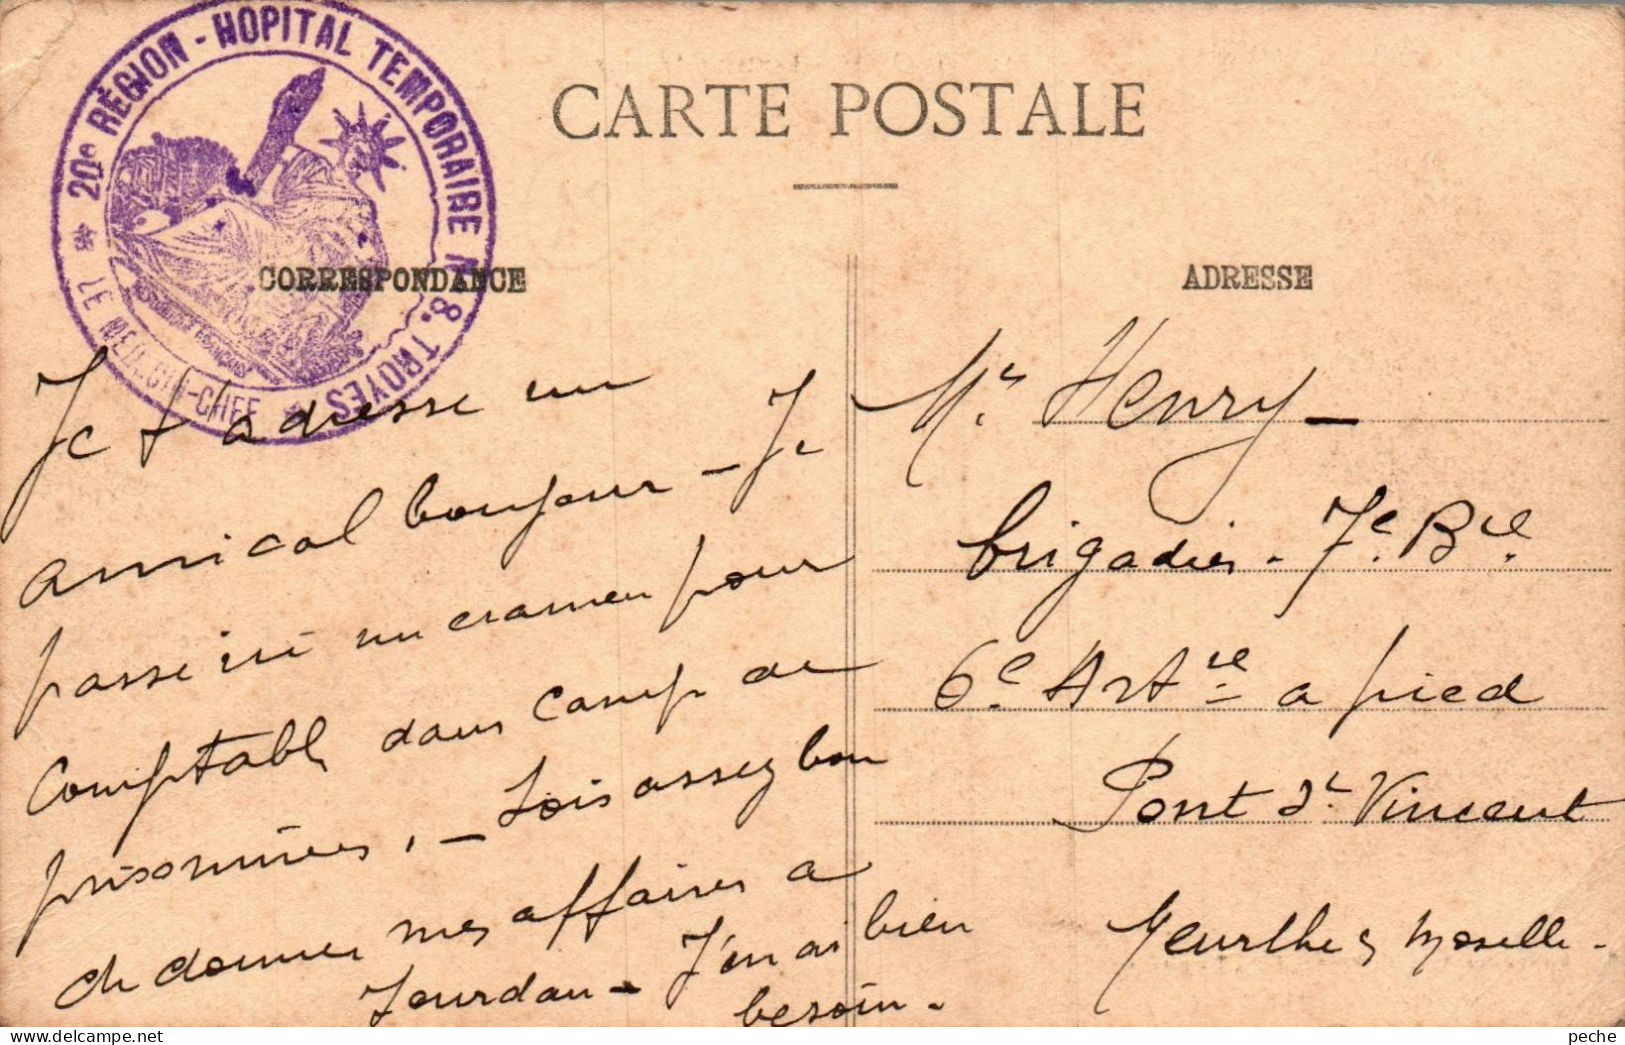 20e RÉGION - HOPITAL TEMPORAIRE N 8. TROYES
* LE MEDECIN-CHEF *
CARTE POSTALE
CORRESPONDANCE
ADRESSE
Je t'adresse un
amical bonjour - Je
passe ici un examen pour
comptable dans camp de
prisonniers, - Sois assez bon
de donner mes affaires a
Jourdan - J'en ai bien
besoin.
Mr. Henry -
brigadier - 7e. Bie.
6e. Artie a pied
Pont St. Vincent
Meurthe & Moselle -
peche